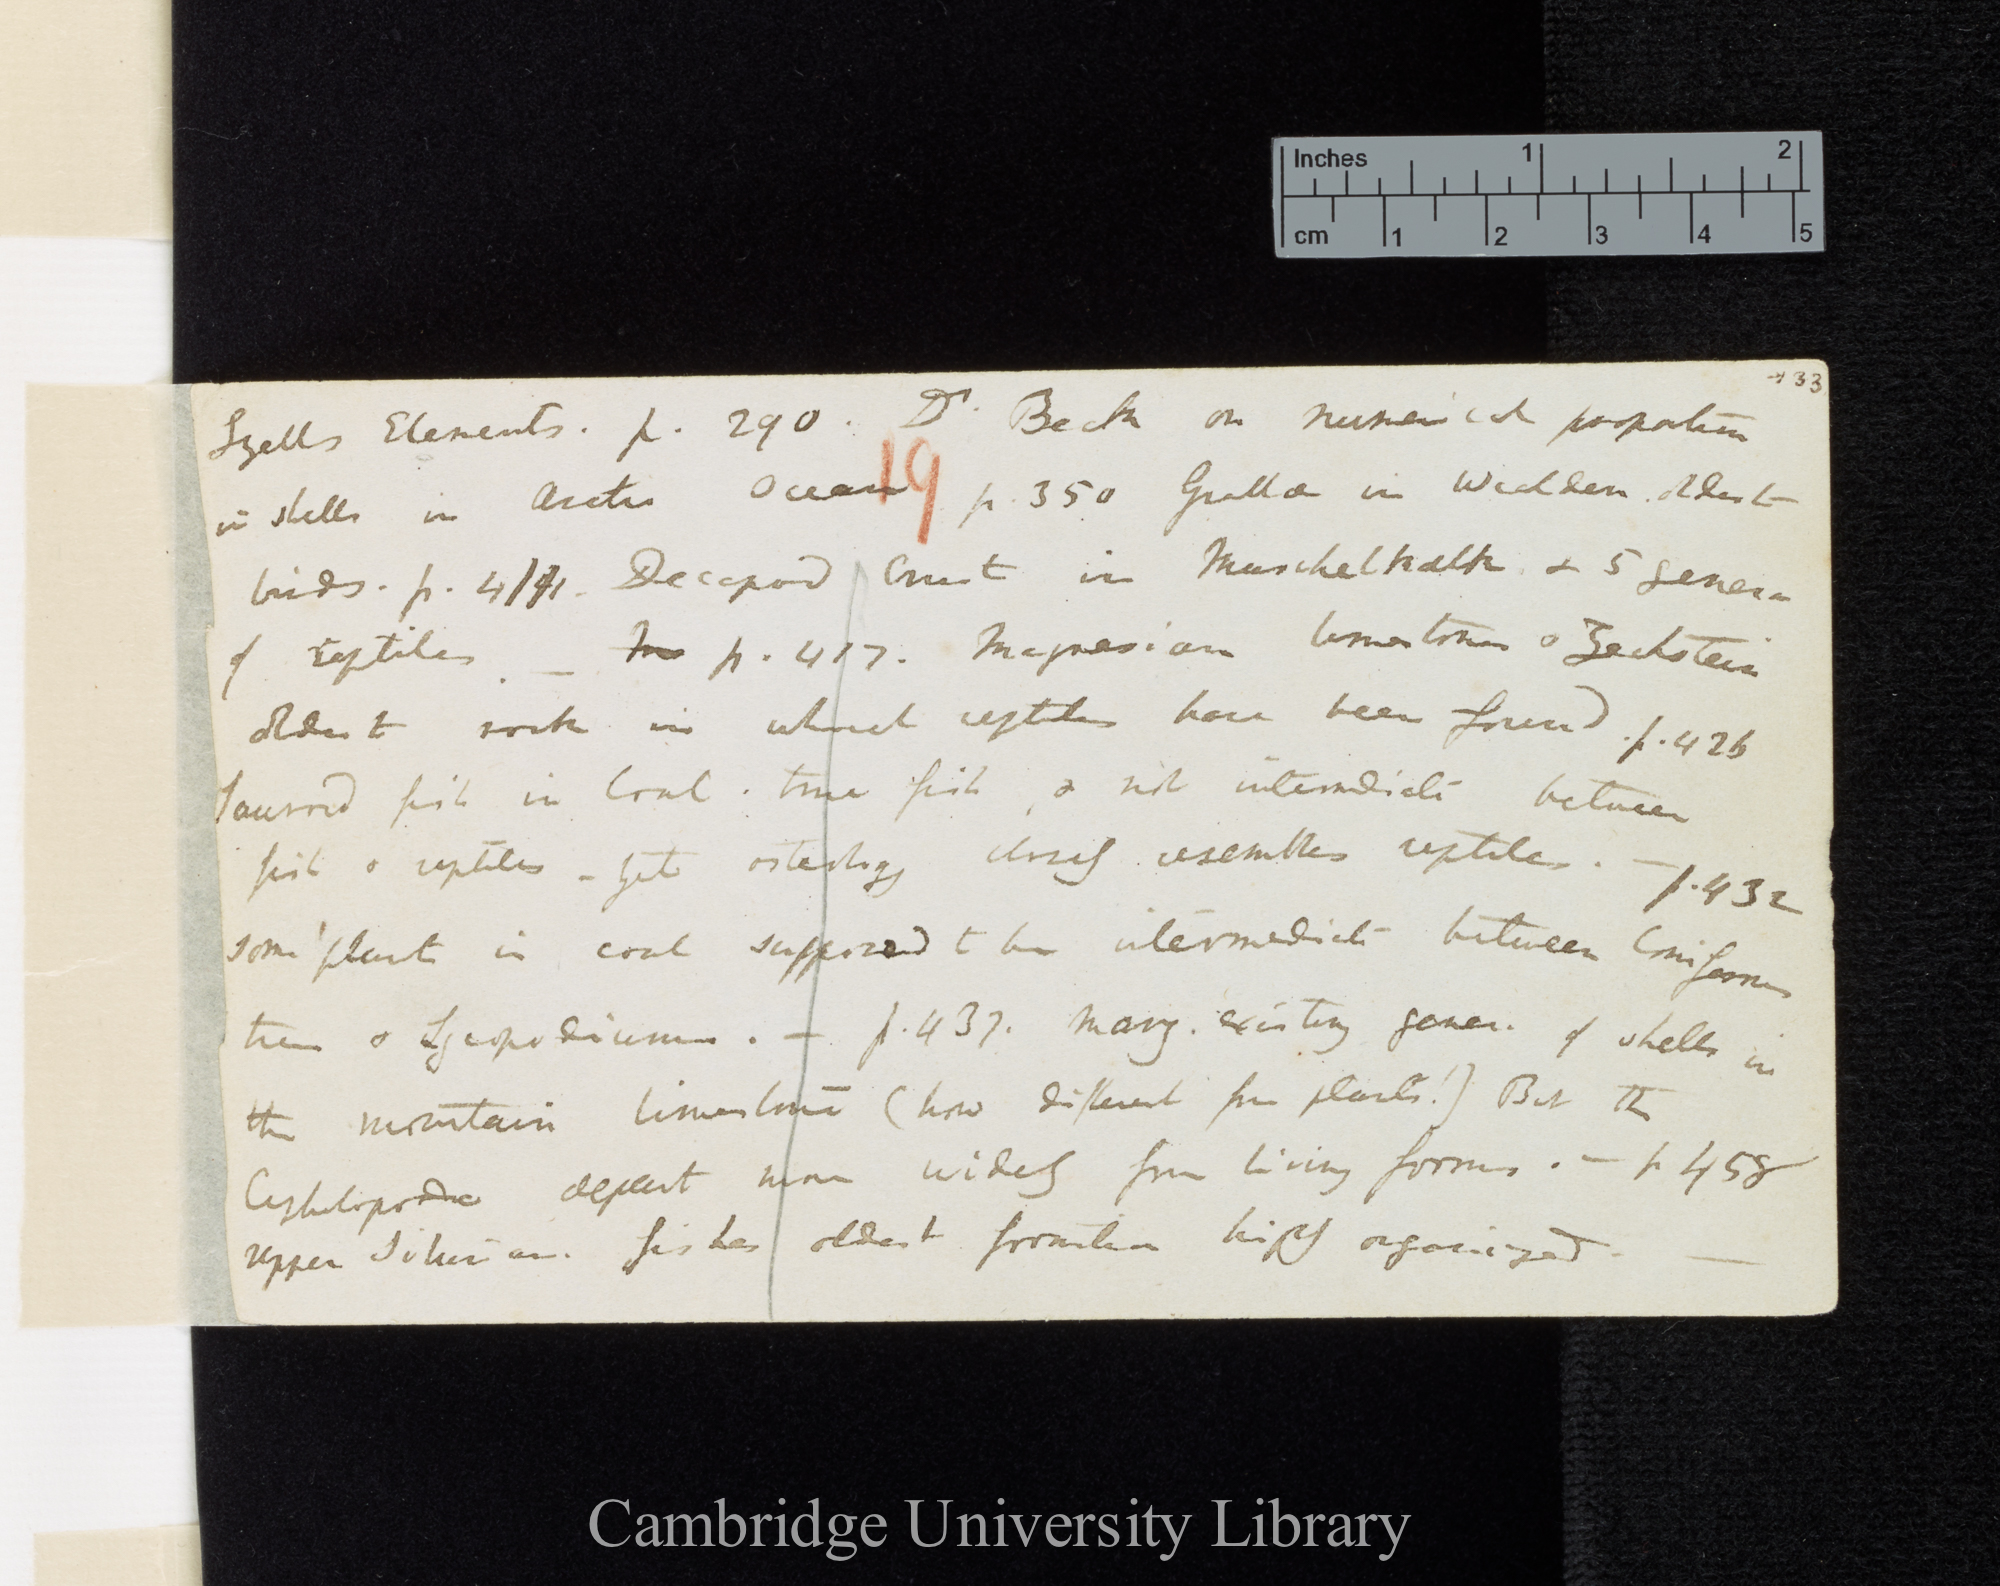 Inches 1 2
cm 1 2 3 4 5
33
Lyells Elements. p. 290. Dr. Beck on numerical proportion
in shells in Arctic Ocean p. 350 Grallæ in Wealden. oldest
19
birds. p. 411. Decapod Crust in Muschelkalk & 5 genera
of reptiles — p. 417. Magnesian limestones & Zechstein
oldest rock in which reptiles have been found. p. 426
Sauroid fish in Coal. true fish, & not intermediate between
fish & reptiles – yet osteology closely resembles reptiles. — p. 432
some plants in coal supposed to be intermediate between Coniferous
trees & Lycopodiums. — p. 437. Many existing genera of shells in
the mountain limestone (how different from plants!) But the
Cephalopodæ depart more widely from living forms. — p 458
Upper Silurian. fishes oldest formation highly organized. —
Cambridge University Library